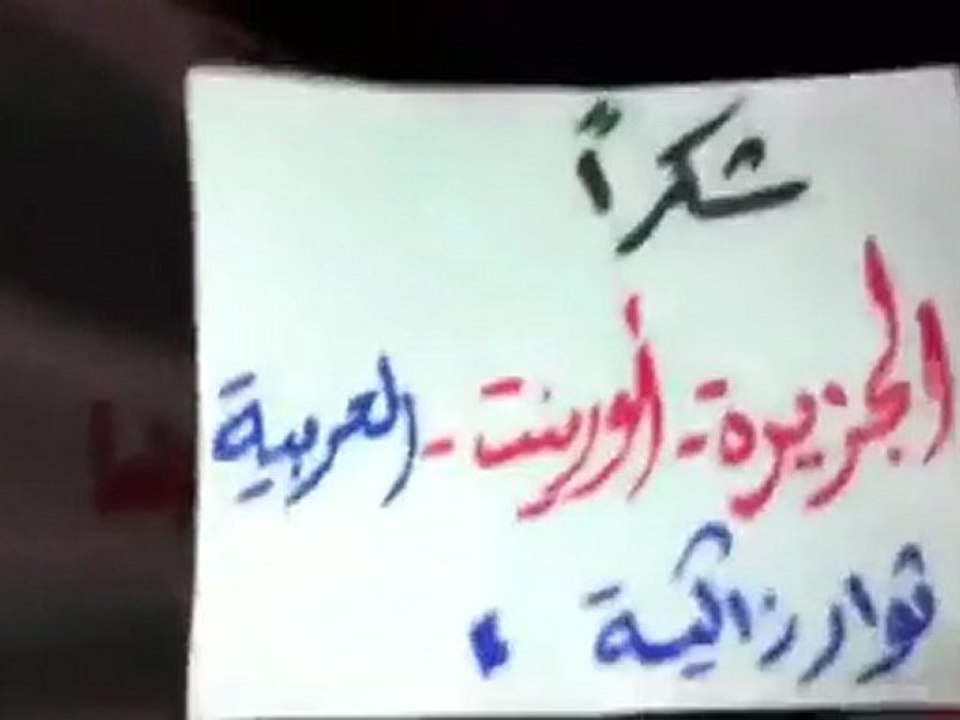 شكراً
الجزيرة - أورينت - العربية
ثوار زاكية .